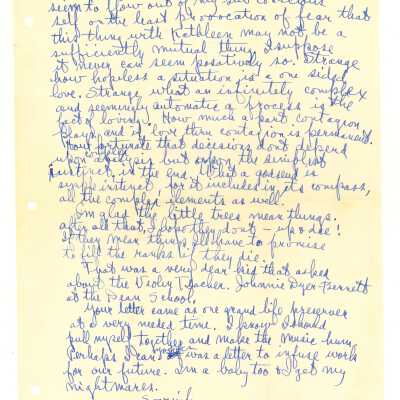 seem to flow out of my sub conscious
self on the least provocation of fear that
this thing with Kathleen may not be a
sufficiently mutual thing I suppose
it never can seem positively so. Strange
how hopeless a situation is a one sided
love. Strange what an infinitely complex
and seemingly automatic a process is the
fact of loving. How much a part contagion
plays, and if love thru contagion is permanent.
How fortunate that decisions don't depend
upon complex analysis but upon the simplest
instinct in the end. What a godsend is
simple instinct, for it includes in its compass,
all the complex elements as well.
I'm glad the little trees mean things.
after all that, I hope they don't - up & die!
If they mean things I'll have to promise
to fill the ranks if they die.
That was a very dear kid that asked
about the Violin Teacher. Johnnie Dyer-Bennett
at the Dean School.
Your letter came as one grand life preserver
at a very needed time. I know I should
pull myself together and make the music hum.
Perhaps I can. was a letter to infuse work
for our future. I'm a baby too & I get my
nightmares.